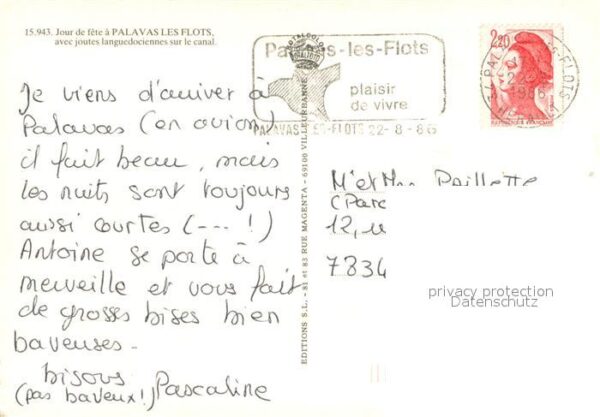 15.943. Jour de fête à PALAVAS LES FLOTS,
avec joutes languedociennes sur le canal.
Je viens d'arriver à
Palavas (en avion)
il fait beau, mais
les nuits sont toujours
aussi courtes (--- !)
Antoine se porte à
merveille et vous fait
de grosses bises bien
baveuses.
bisous
(pas baveux!) Pascaline
EDITIONS S.L. - 81 et 83 RUE MAGENTA - 69100 VILLEURBANNE
ROYALCOLOR
Palavas-les-Flots
plaisir
de vivre
PALAVAS LES-FLOTS 22-8-86
2,20
REPUBLIQUE FRANÇAISE
PALAVAS-LES-FLOTS
22-8
1986
HERAULT
M' et Mme Paillette
(Parc
12,
7834
privacy protection
Datenschutz